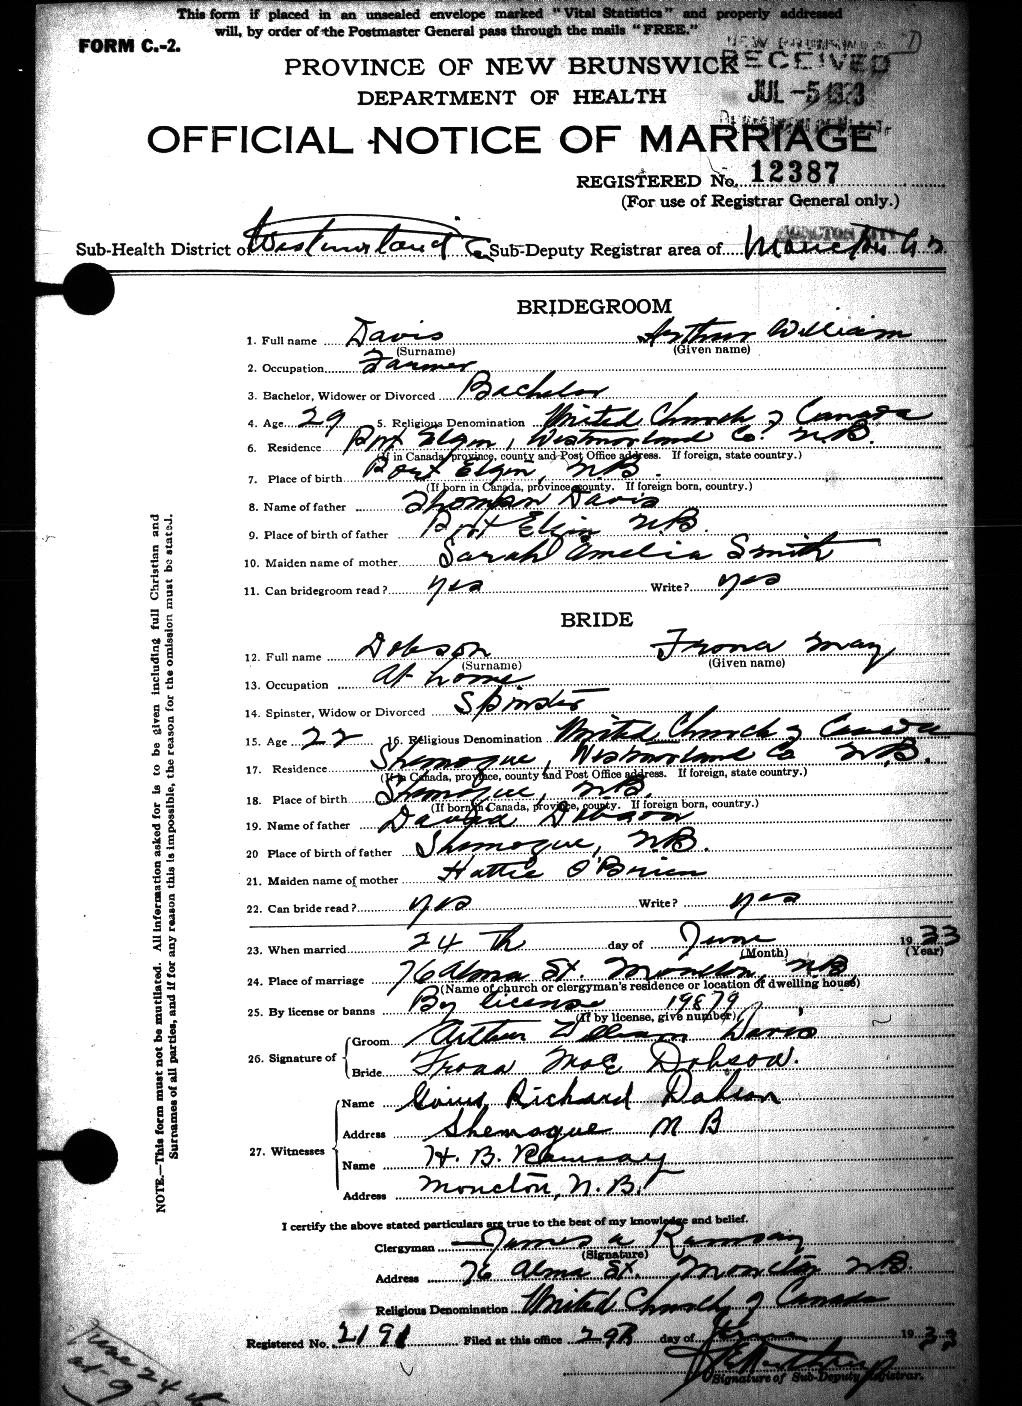 This form if placed in an unsealed envelope marked "Vital Statistics" and properly addressed
will, by order of the Postmaster General pass through the mails "FREE."
FORM C.-2.
PROVINCE OF NEW BRUNSWICK
RECEIVED
DEPARTMENT OF HEALTH
JUL -5 1933
OFFICIAL NOTICE OF MARRIAGE
REGISTERED No. 12387
(For use of Registrar General only.)
Sub-Health District of Westmorland Co Sub-Deputy Registrar area of Moncton
MONCTON CITY
BRIDEGROOM
1. Full name Davis Arthur William
(Surname) (Given name)
2. Occupation Farmer
3. Bachelor, Widower or Divorced Bachelor
4. Age 29 5. Religious Denomination United Church of Canada
6. Residence Port Elgin, Westmorland Co. N.B.
(If in Canada, province, county and Post Office address. If foreign, state country.)
7. Place of birth Port Elgin, N.B.
(If born in Canada, province county. If foreign born, country.)
8. Name of father Thomson Davis
9. Place of birth of father Port Elgin N.B.
10. Maiden name of mother Sarah Amelia Smith
11. Can bridegroom read? yes Write? yes
BRIDE
12. Full name Dobson Frona May
(Surname) (Given name)
13. Occupation At home
14. Spinster, Widow or Divorced Spinster
15. Age 22 16. Religious Denomination United Church of Canada
17. Residence Shemogue, Westmorland Co N.B.
(If in Canada, province, county and Post Office address. If foreign, state country.)
18. Place of birth Shemogue, N.B.
(If born in Canada, province, county. If foreign born, country.)
19. Name of father David Dobson
20 Place of birth of father Shemogue, N.B.
21. Maiden name of mother Hattie O'Brien
22. Can bride read? yes Write? yes
23. When married 24 th day of June 1933
(Month) (Year)
24. Place of marriage 76 Alma St. Moncton, N.B.
(Name of church or clergyman's residence or location of dwelling house)
25. By license or banns By license 19879
(If by license, give number)
26. Signature of Groom Arthur William Davis
Bride Frona Mae Dobson.
27. Witnesses Name Richard Dobson
Address Shemogue N B
Name H. B. Ramsay
Address Moncton, N.B.
I certify the above stated particulars are true to the best of my knowledge and belief.
Clergyman James A Ramsay
(Signature)
Address 76 Alma St. Moncton N.B.
Religious Denomination United Church of Canada
Registered No. 2191 Filed at this office 29th day of June 1933
Signature of Sub-Deputy Registrar.
NOTE.—This form must not be mutilated. All information asked for is to be given including full Christian and
Surnames of all parties, and if for any reason this is impossible, the reason for the omission must be stated.
June 24 th
at 9